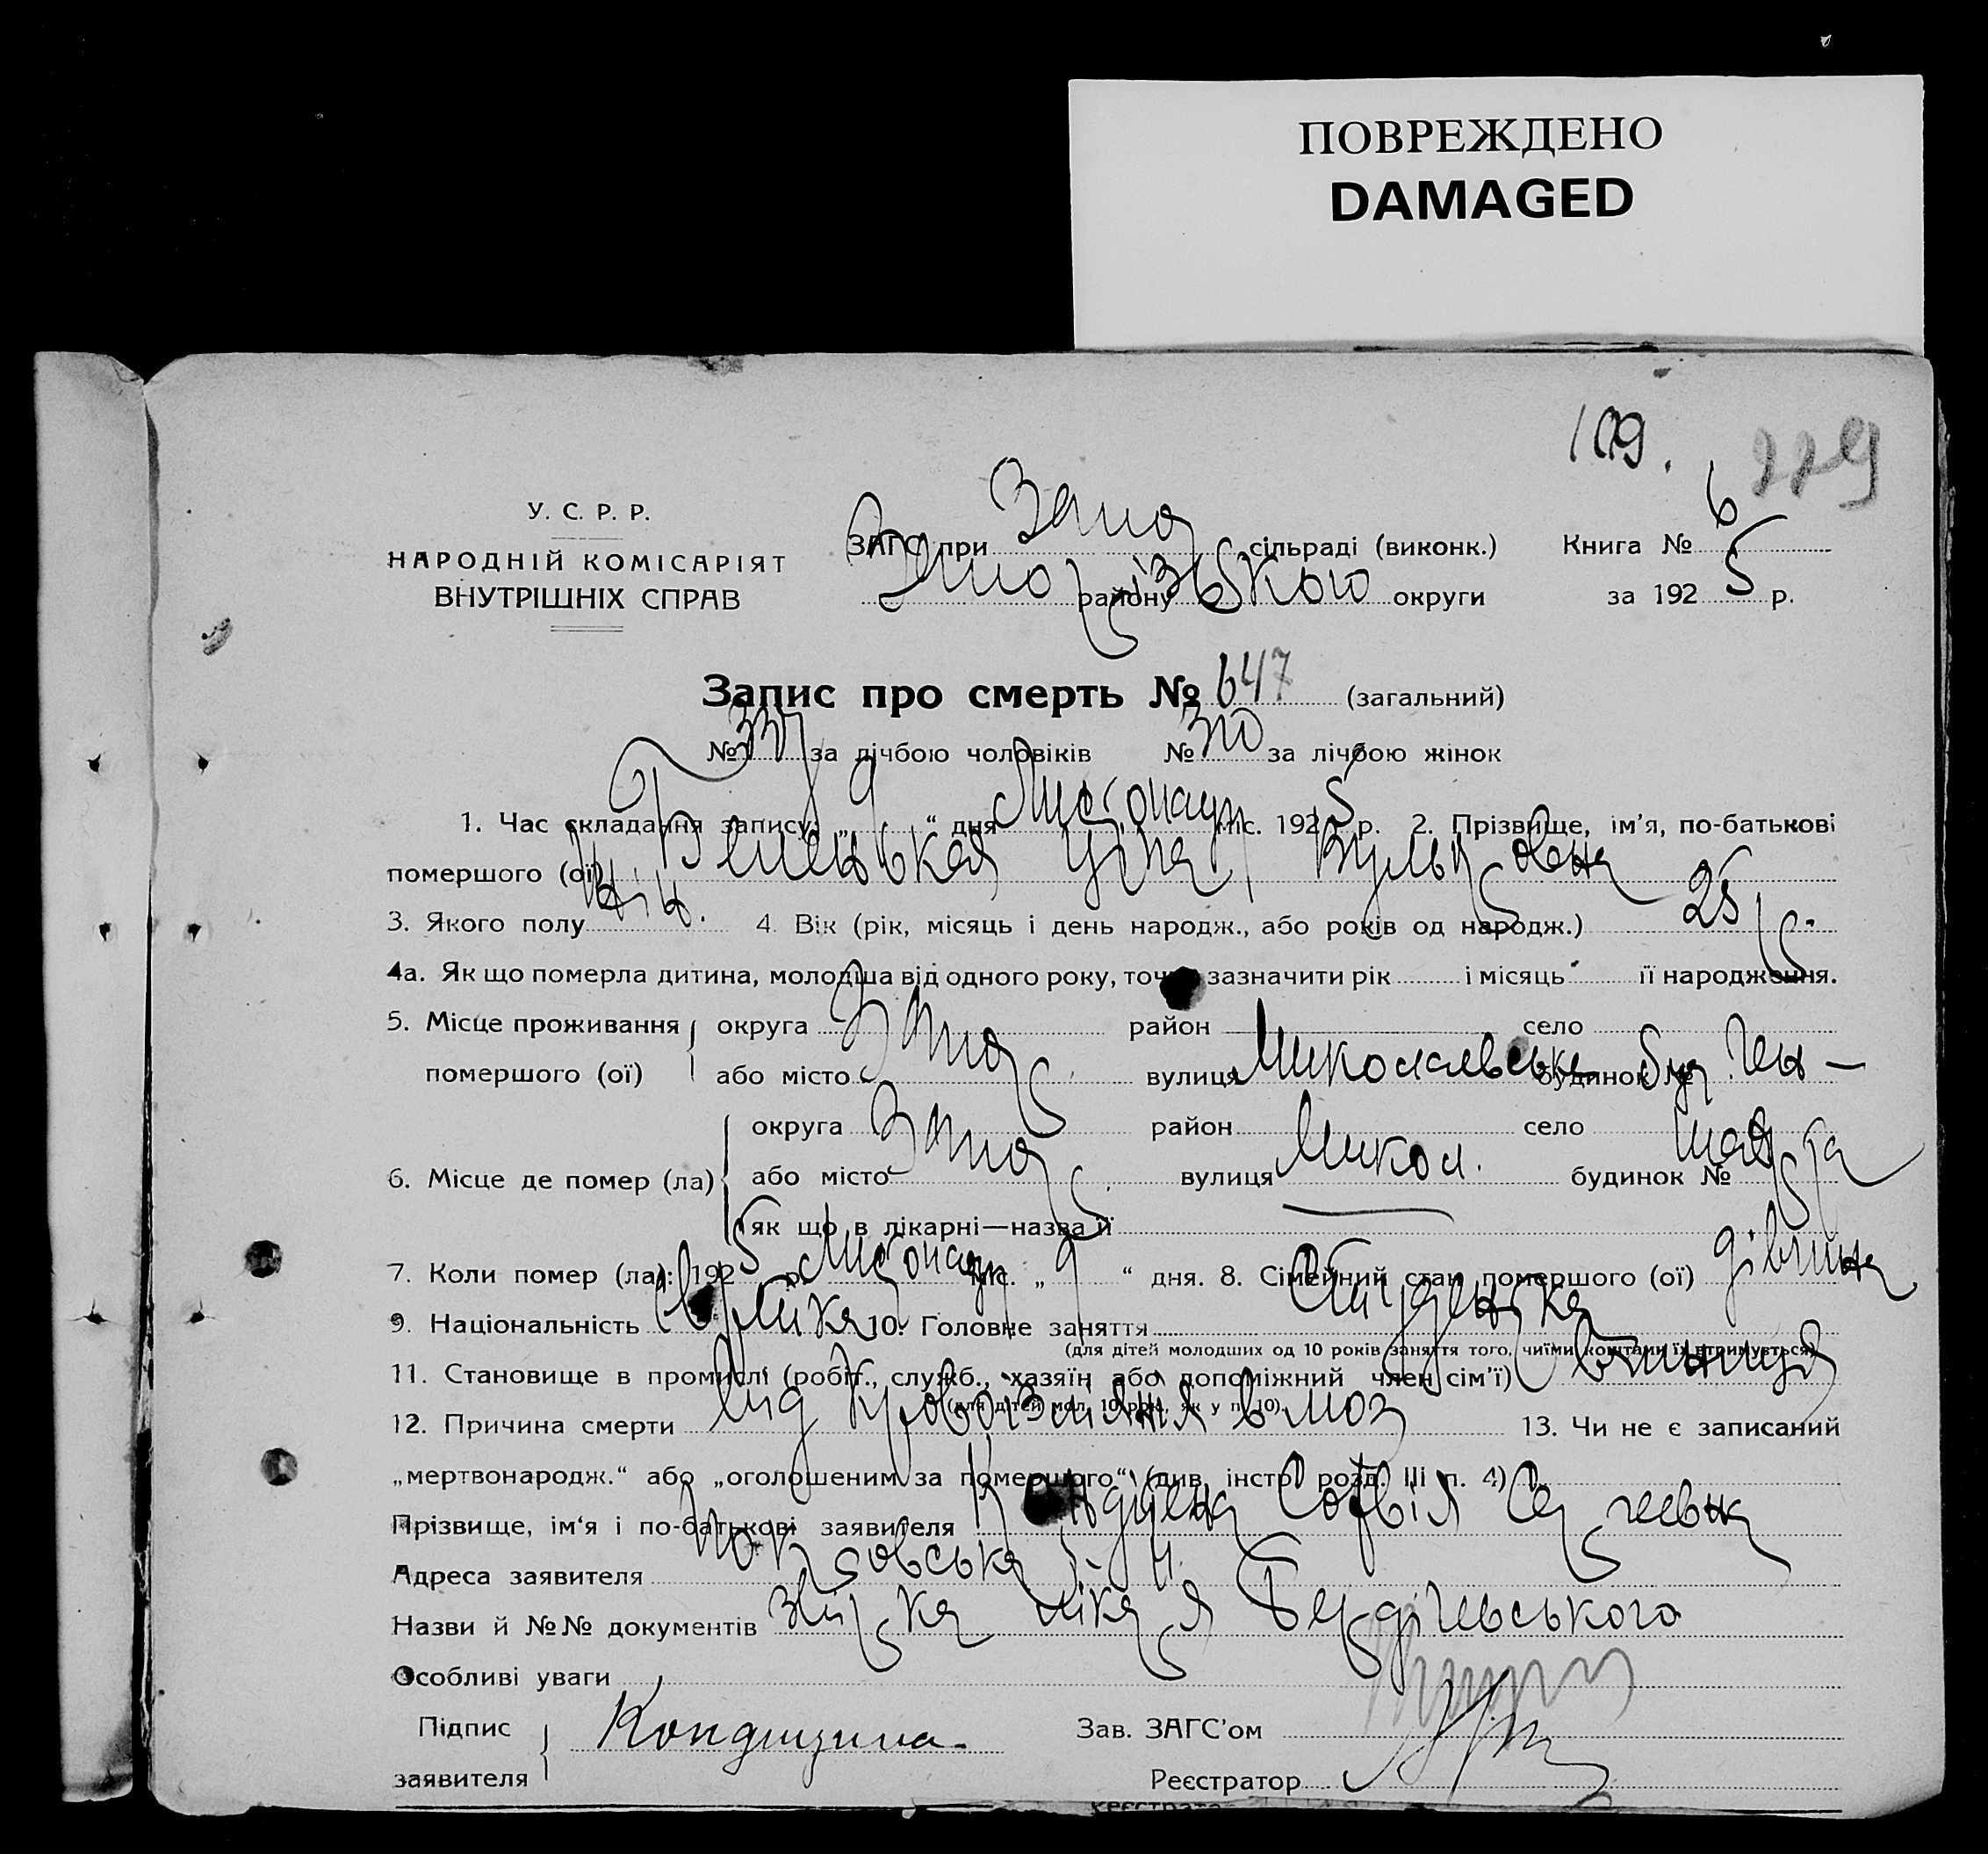 ПОВРЕЖДЕНО
DAMAGED
109.
229
У. С. Р. Р.
НАРОДНІЙ КОМІСАРІЯТ
ВНУТРІШНІХ СПРАВ
ЗАГС при Запор сільраді (виконк.)
Запорізького району округи
Книга № 6
за 1925 р.
Запис про смерть № 647 (загальний)
№ 337 за лічбою чоловіків № 310 за лічбою жінок
1. Час складання запису: „ 9 “ дня Листопаду міс. 1925 р. 2. Прізвище, ім'я, по-батькові
помершого (ої)
3. Якого полу жін. 4. Вік (рік, місяць і день народж., або років од народж.) 25 р.
4а. Як що померла дитина, молодша від одного року, точно зазначити рік і місяць її народження.
5. Місце проживання помершого (ої) округа Запор район село
або місто вулиця Миколаєвська будинок №
6. Місце де помер (ла) округа Запор район село
або місто вулиця Микол. будинок №
як що в лікарні—назва її
7. Коли помер (ла): 1925 р. Листопаду міс. „ 9 “ дня. 8. Сімейний стан помершого (ої) дівчина
9. Національність Єврейка 10. Головне заняття
(для дітей молодших од 10 років заняття того, чиїми коштами їх втримується)
11. Становище в промислі (робіт., служб., хазяїн або допоміжний член сім'ї)
(для дітей мол. 10 рок., як у п. 10).
12. Причина смерти від Кровозлияння в мозг 13. Чи не є записаний
„мертвонародж.“ або „оголошеним за помершого“ (див. інстр. розд. III п. 4)
Прізвище, ім'я і по-батькові заявителя Софія Сергеевна
Адреса заявителя Покровська
Назви й №№ документів лікаря Бердічевського
Особливі уваги
Підпис заявителя
Зав. ЗАГС'ом
Реєстратор